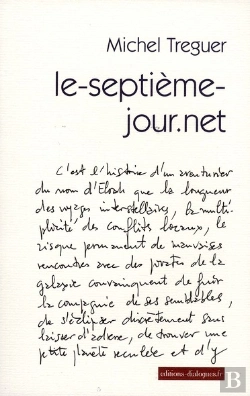 Michel Treguer
le-septième-
jour.net
C'est l'histoire d'un aventurier
du nom d'Eloah que la longueur
des voyages interstellaires, la multi-
plicité des conflits locaux, le
risque permanent de mauvaises
rencontres avec des pirates de la
galaxie convainquent de fuir
la compagnie de ses semblables,
de s'éclipser discrètement sans
laisser d'adresse, de trouver une
petite planète reculée et d'y
editions-dialogues.fr
B